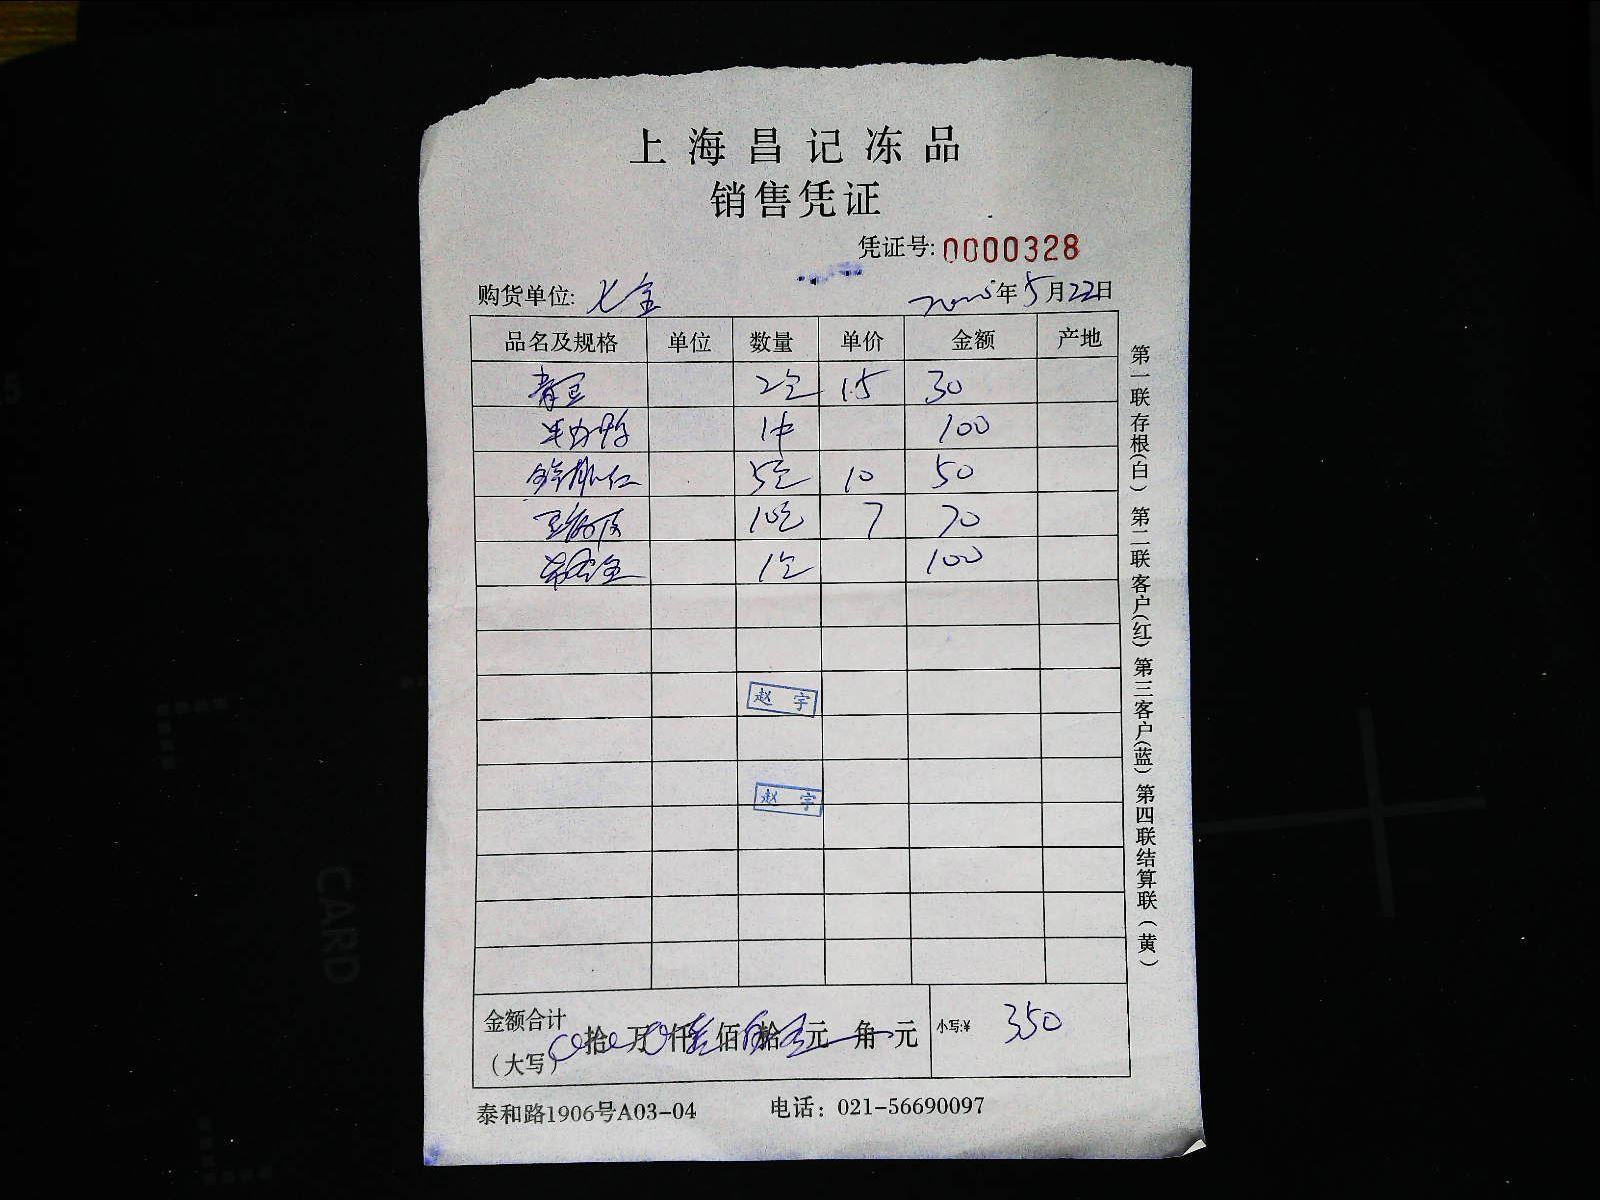 上海昌记冻品
销售凭证
凭证号: 0000328
购货单位: 七宝
年5月22日
品名及规格 单位 数量 单价 金额 产地
青豆 2包 15 30
1件 100
5包 10 50
10包 7 70
1包 100
赵宇
赵宇
金额合计(大写) 拾 万 仟 佰 拾 元 角 元 小写:¥ 350
泰和路1906号A03-04 电话: 021-56690097
第一联存根(白) 第二联客户(红) 第三客户(蓝) 第四联结算联(黄)